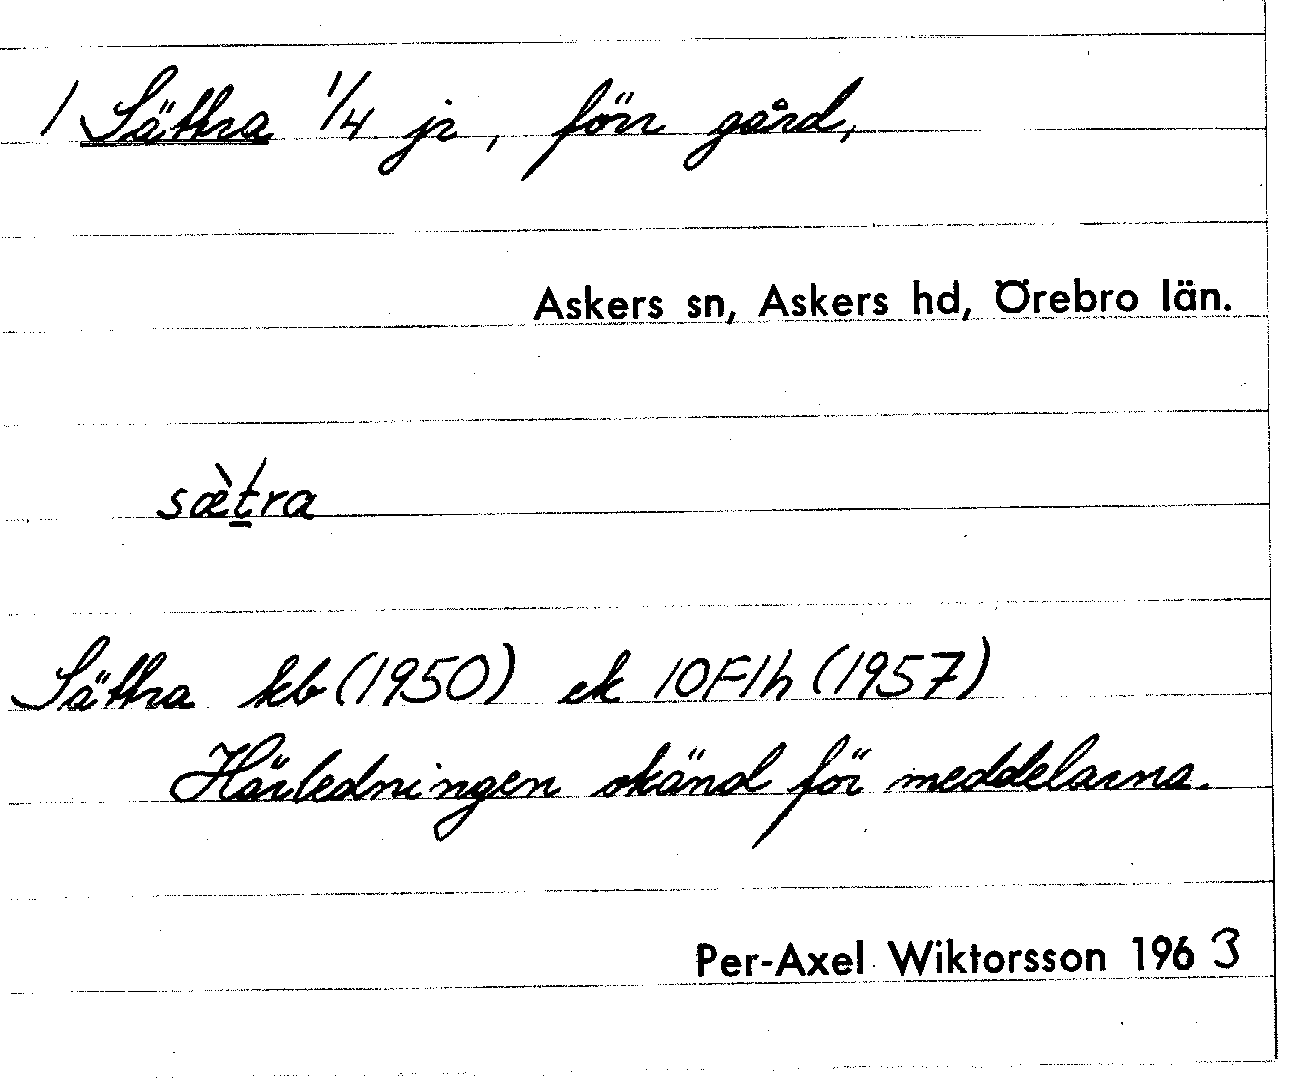 1 Sättra 1/4 jr, förr gård,
Askers sn, Askers hd, Örebro län.
sæ̀t́ra
Sättra kb (1950) ek 10F1h (1957)
Härledningen okänd för meddelarna.
Per-Axel Wiktorsson 1963